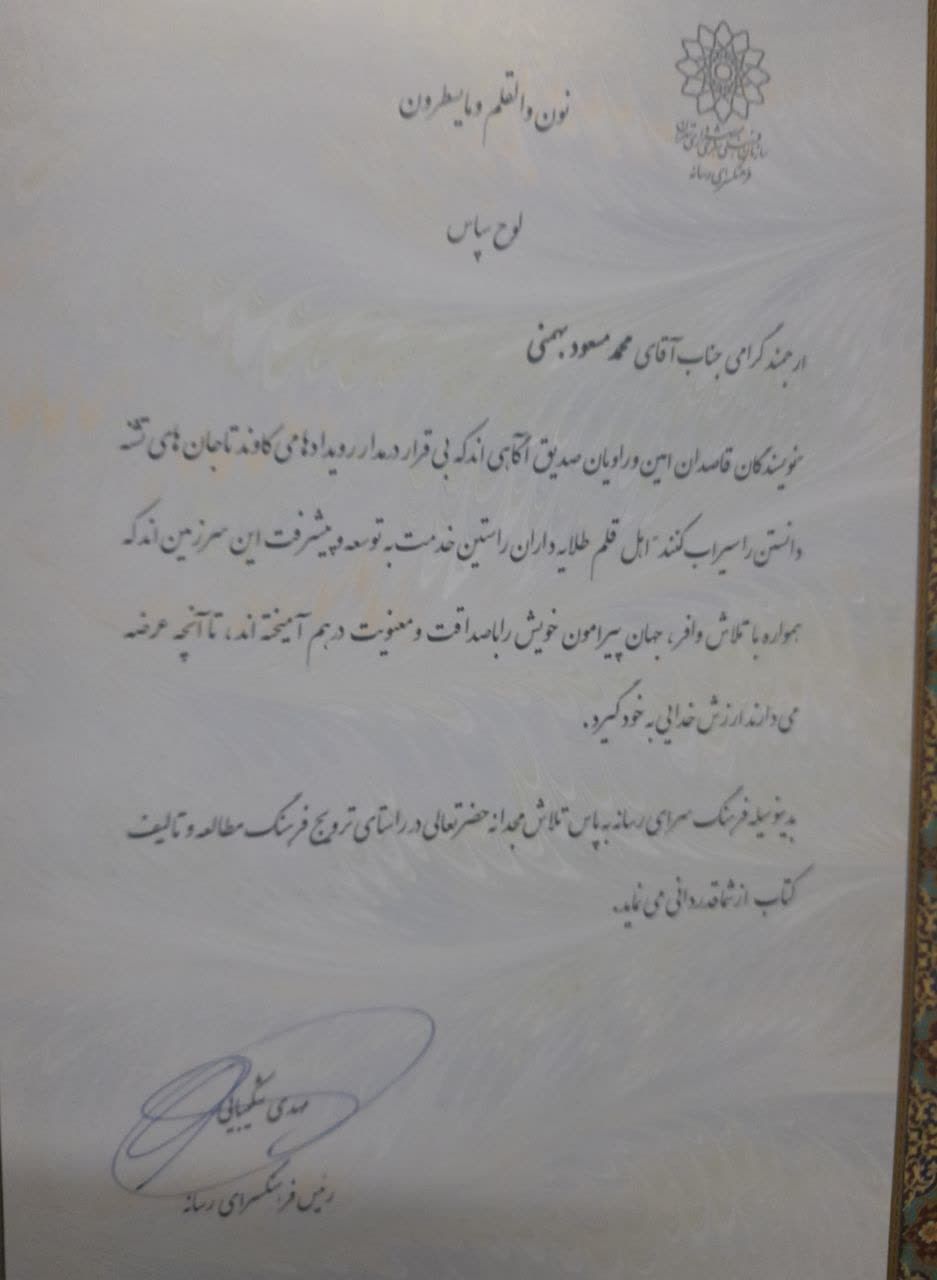 نون والقلم و مایسطرون
سازمان فرهنگی هنری شهرداری تهران
فرهنگسرای رسانه
لوح سپاس
ارجمند گرامی جناب آقای محمد مسعود بهمنی
نویسندگان قاصدان امین و راویان صدیق آگاهی اند که بی قرار در مدار رویدادها می کاوند تا جان های تشنه
دانستن را سیراب کنند اهل قلم طلایه داران راستین خدمت به توسعه و پیشرفت این سرزمین اند که
همواره با تلاش وافر، جهان پیرامون خویش را با صداقت و معنویت درهم آمیخته اند، تا آنچه عرضه
می دارند ارزش خدایی به خود گیرد.
بدینوسیله فرهنگ سرای رسانه به پاس تلاش مجدانه حضرتعالی در راستای ترویج فرهنگ مطالعه و تالیف
کتاب از شما قدردانی می نماید.
مهدی شکیبایی
رئیس فرهنگسرای رسانه